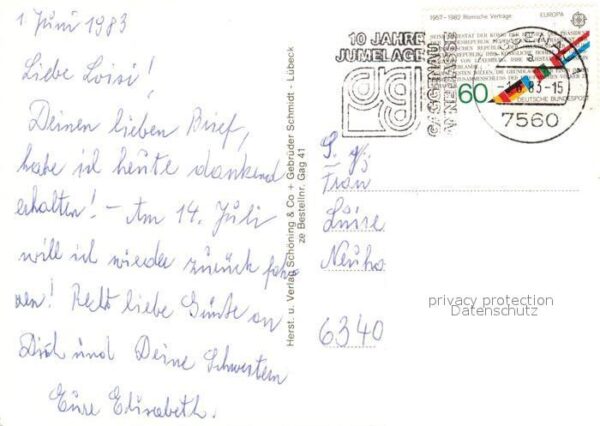 1. Juni 1983
Liebe Loisi!
Deinen lieben Brief,
habe ich heute dankend
erhalten! – Am 14. Juli
will ich wieder zurück fah
ren! Recht liebe Grüsse an
Dich und Deine Schwestern
Eure Elisabeth.
Herst. u. Verlag Schöning & Co + Gebrüder Schmidt - Lübeck
ze Bestellnr. Gag 41
10 JAHRE
JUMELAGE
GAGGENAU
ANNEMASSE
1957-1982 Römische Verträge
EUROPA
60
DEUTSCHE BUNDESPOST
83-15
7560
Frau
Luise
Neuho
6340
privacy protection
Datenschutz